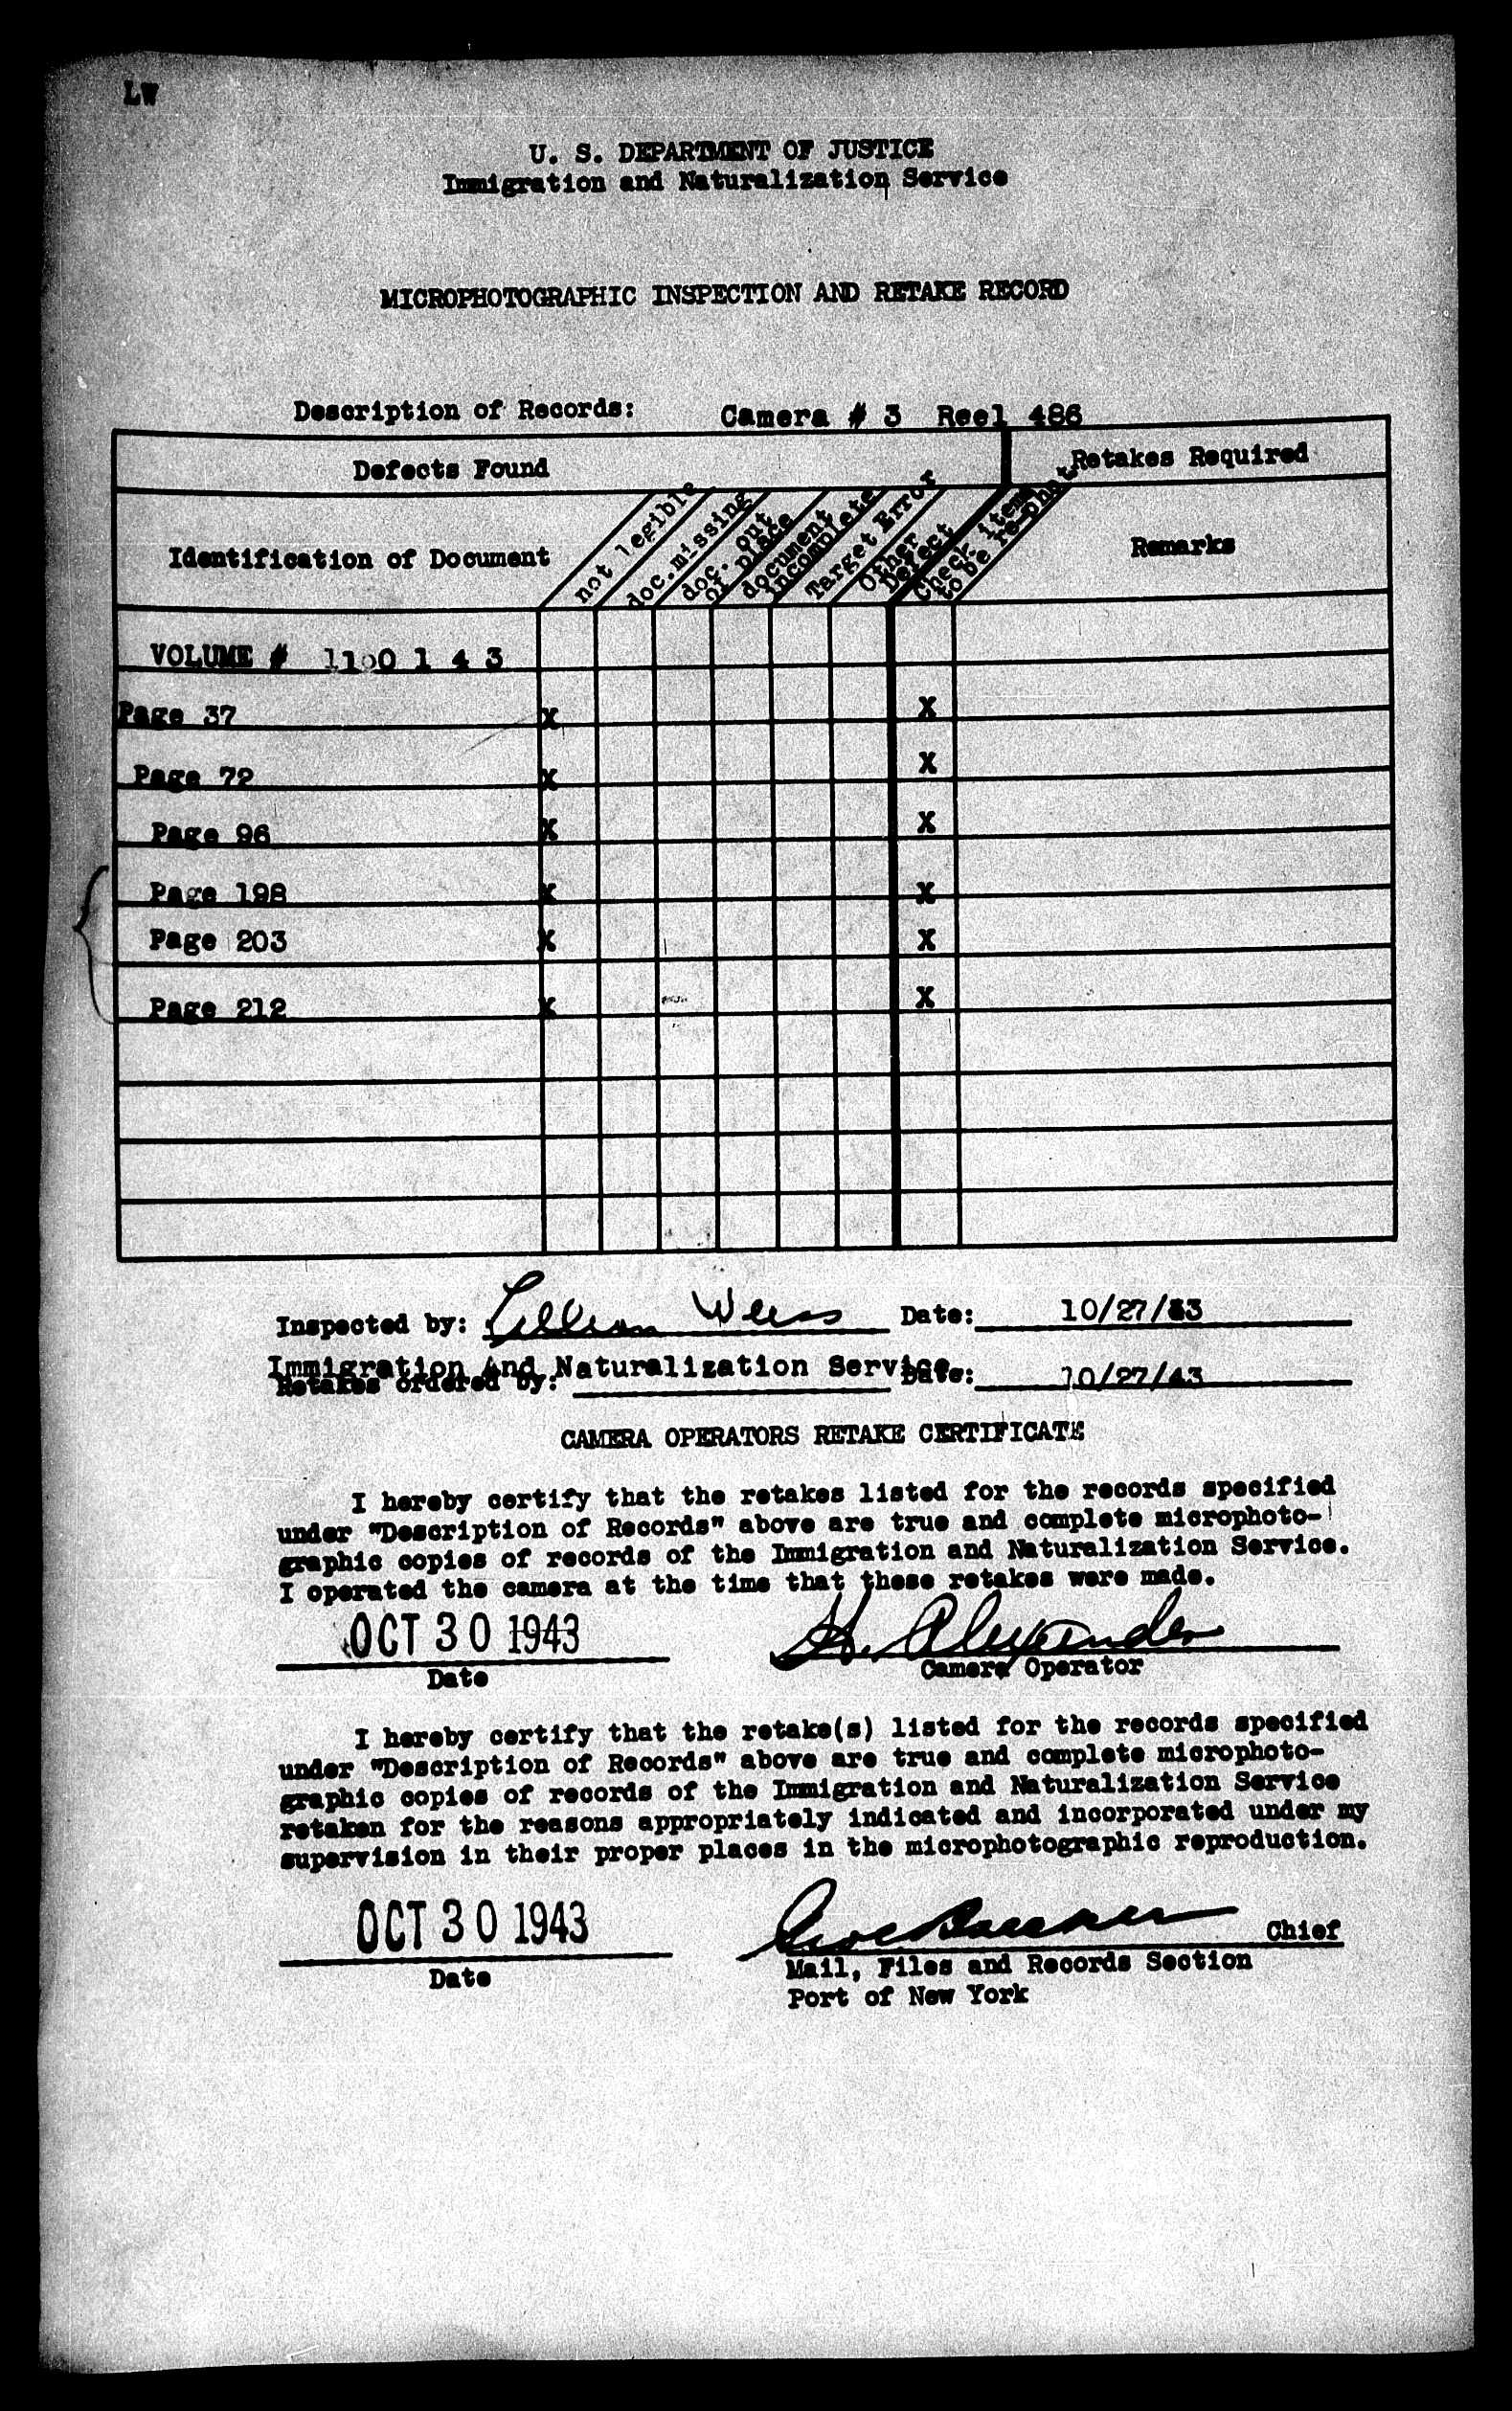 LW
U. S. DEPARTMENT OF JUSTICE
Immigration and Naturalization Service
MICROPHOTOGRAPHIC INSPECTION AND RETAKE RECORD
Description of Records: Camera # 3 Reel 486
Defects Found Retakes Required
Identification of Document
not legible
doc.missing
doc. out
of place
document
incomplete
Target Error
Other
Defect
Check items
to be re-phot
Remarks
VOLUME # 0 1 4 3
Page 37 X X
Page 72 X X
Page 96 X X
Page 198 X X
Page 203 X X
Page 212 X X
Inspected by: Lillian Weiss Date: 10/27/43
Immigration And Naturalization Service
Retakes ordered by: Date: 10/27/43
CAMERA OPERATORS RETAKE CERTIFICATE
I hereby certify that the retakes listed for the records specified
under "Description of Records" above are true and complete microphoto-
graphic copies of records of the Immigration and Naturalization Service.
I operated the camera at the time that these retakes were made.
OCT 30 1943 H. Alexander
Date Camera Operator
I hereby certify that the retake(s) listed for the records specified
under "Description of Records" above are true and complete microphoto-
graphic copies of records of the Immigration and Naturalization Service
retaken for the reasons appropriately indicated and incorporated under my
supervision in their proper places in the microphotographic reproduction.
OCT 30 1943 Chief
Date Mail, Files and Records Section
Port of New York